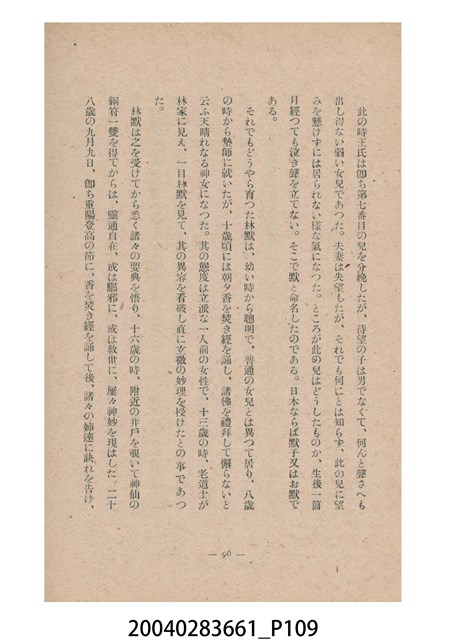 此の時王氏は卽ち第七番目の兒を分娩したが、待望の子は男でなくて、何んと聲さへも
出し得ない弱い女兒であつた。夫妻は失望したが、それでも何にとは知らず、此の兒に望
みを懸けずには居られない樣な氣になつた。ところが此の兒はどうしたものか、生後一箇
月經つても泣き聲を立てない。そこで默と命名したのである。日本ならば默子又はお默で
ある。
それでもどうやら育つた林默は、幼い時から聰明で、普通の女兒とは異つて居り、八歲
の時から塾師に就いたが、十歲頃には朝夕香を焚き經を誦し、諸佛を禮拜して懈らないと
云ふ天晴れなる神女になつた。其の態度は立派な一人前の女性で、十三歲の時、老道士が
林家に見え、一目林默を見て、其の異容を看破し直に立徵の妙理を授けたとの事であつ
た。
林默は之を受けてから悉く諸々の要典を悟り、十六歲の時、附近の井戶を覗いて神仙の
銅符一雙を得てからは、靈通自在、或は驅邪に、或は救世に、屢々神妙を現はした。二十
八歲の九月九日、卽ち重陽登高の節に、香を焚き經を誦して後、諸々の姉達に訣れを告げ、
— 96 —
20040283661_P109